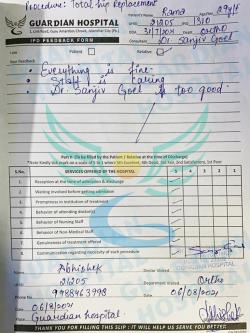 Procedure: Total hip Replacement
GUARDIAN HOSPITAL
IPD FEEDBACK FORM
Patient's Name Rama
UHID 21205
Ortho
Consultant Dr. Sanjiv Goel
I am Patient Relative
Your Feedback
• Everything is fine.
• Staff is caring
Dr. Sanjiv Goel is too good.
Part II- (To be filled by the Patient / Relative at the time of Discharge)
S.No. SERVICES OFFERED OF THE HOSPITAL 5 4 3 2 1
1. Reception at the time of admission & discharge
2. Waiting involved before getting admission
3. Promptness in institution of treatment
4. Behavior of attending doctor(s)
5. Behavior of Nursing Staff
6. Behavior of Non-Medical Staff
7. Genuineness of treatment offered
8. Communication regarding necessity of such procedure
Name Abhishek
21205 Department Visited Ortho
9988463998 Date 06/08/2021
06/8/2021
Guardian hospital
THANK YOU FOR FILLING THIS SLIP : IT WILL HELP US SERVE YOU BETTER